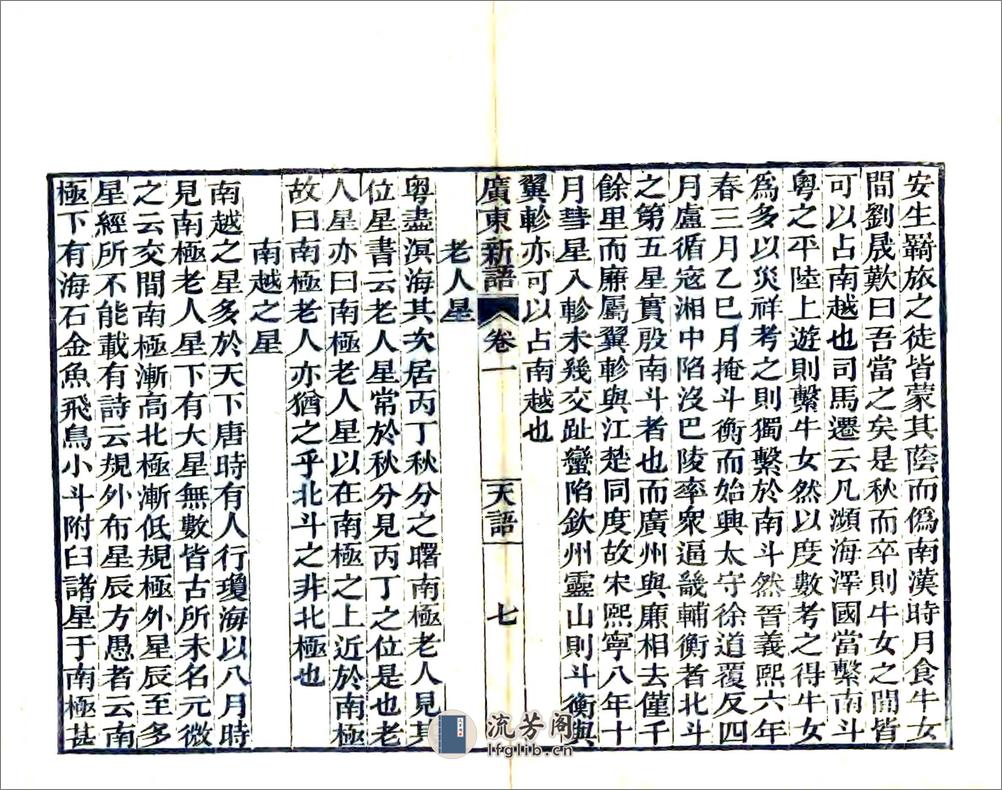 安生羇旅之徒皆蒙其蔭而僞南漢時月食牛女
間劉晟歎曰吾當之矣是秋而卒則牛女之間皆
可以占南越也司馬遷云凡瀕海澤國當繫南斗
粵之平陸上遊則繫牛女然以度數考之得牛女
爲多以災祥考之則獨繫於南斗然晉義熙六年
春三月乙巳月掩斗衡而始興太守徐道覆反四
月盧循寇湘中陷沒巴陵率衆逼畿輔衡者北斗
之第五星實殷南斗者也而廣州與廉相去僅千
餘里而廉屬翼軫與江楚同度故宋熙寧八年十
月彗星入軫未幾交趾蠻陷欽州靈山則斗衡與
翼軫亦可以占南越也
廣東新語 卷一 天語 七
老人星
粵盡溟海其次居丙丁秋分之曙南極老人見其
位星書云老人星常於秋分見丙丁之位是也老
人星亦曰南極老人星以在南極之上近於南極
故曰南極老人亦猶之乎北斗之非北極也
南越之星
南越之星多於天下唐時有人行瓊海以八月時
見南極老人星下有大星無數皆古所未名元微
之云交間南極漸高北極漸低規極外星辰至多
星經所不能載有詩云規外布星辰方愚者云南
極下有海石金魚飛鳥小斗附臼諸星于南極甚
流芳阁
lfglib.cn